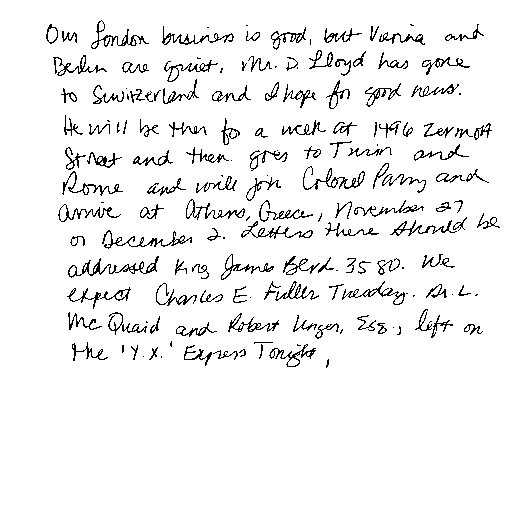 Our London business is good, but Vienna and
Berlin are quiet. Mr. D. Lloyd has gone
to Switzerland and I hope for good news.
He will be ther for a week at 1496 Zermott
Street and then goes to Turin and
Rome and will join Colonel Parry and
arrive at Athens, Greece, November 27
or December 2. Letters there should be
addressed King James Blvd. 3580. We
expect Charles E. Fuller Tuesday. Dr. L.
McQuaid and Robert Unger, Esq., left on
the 'Y.X.' Express Tonight,